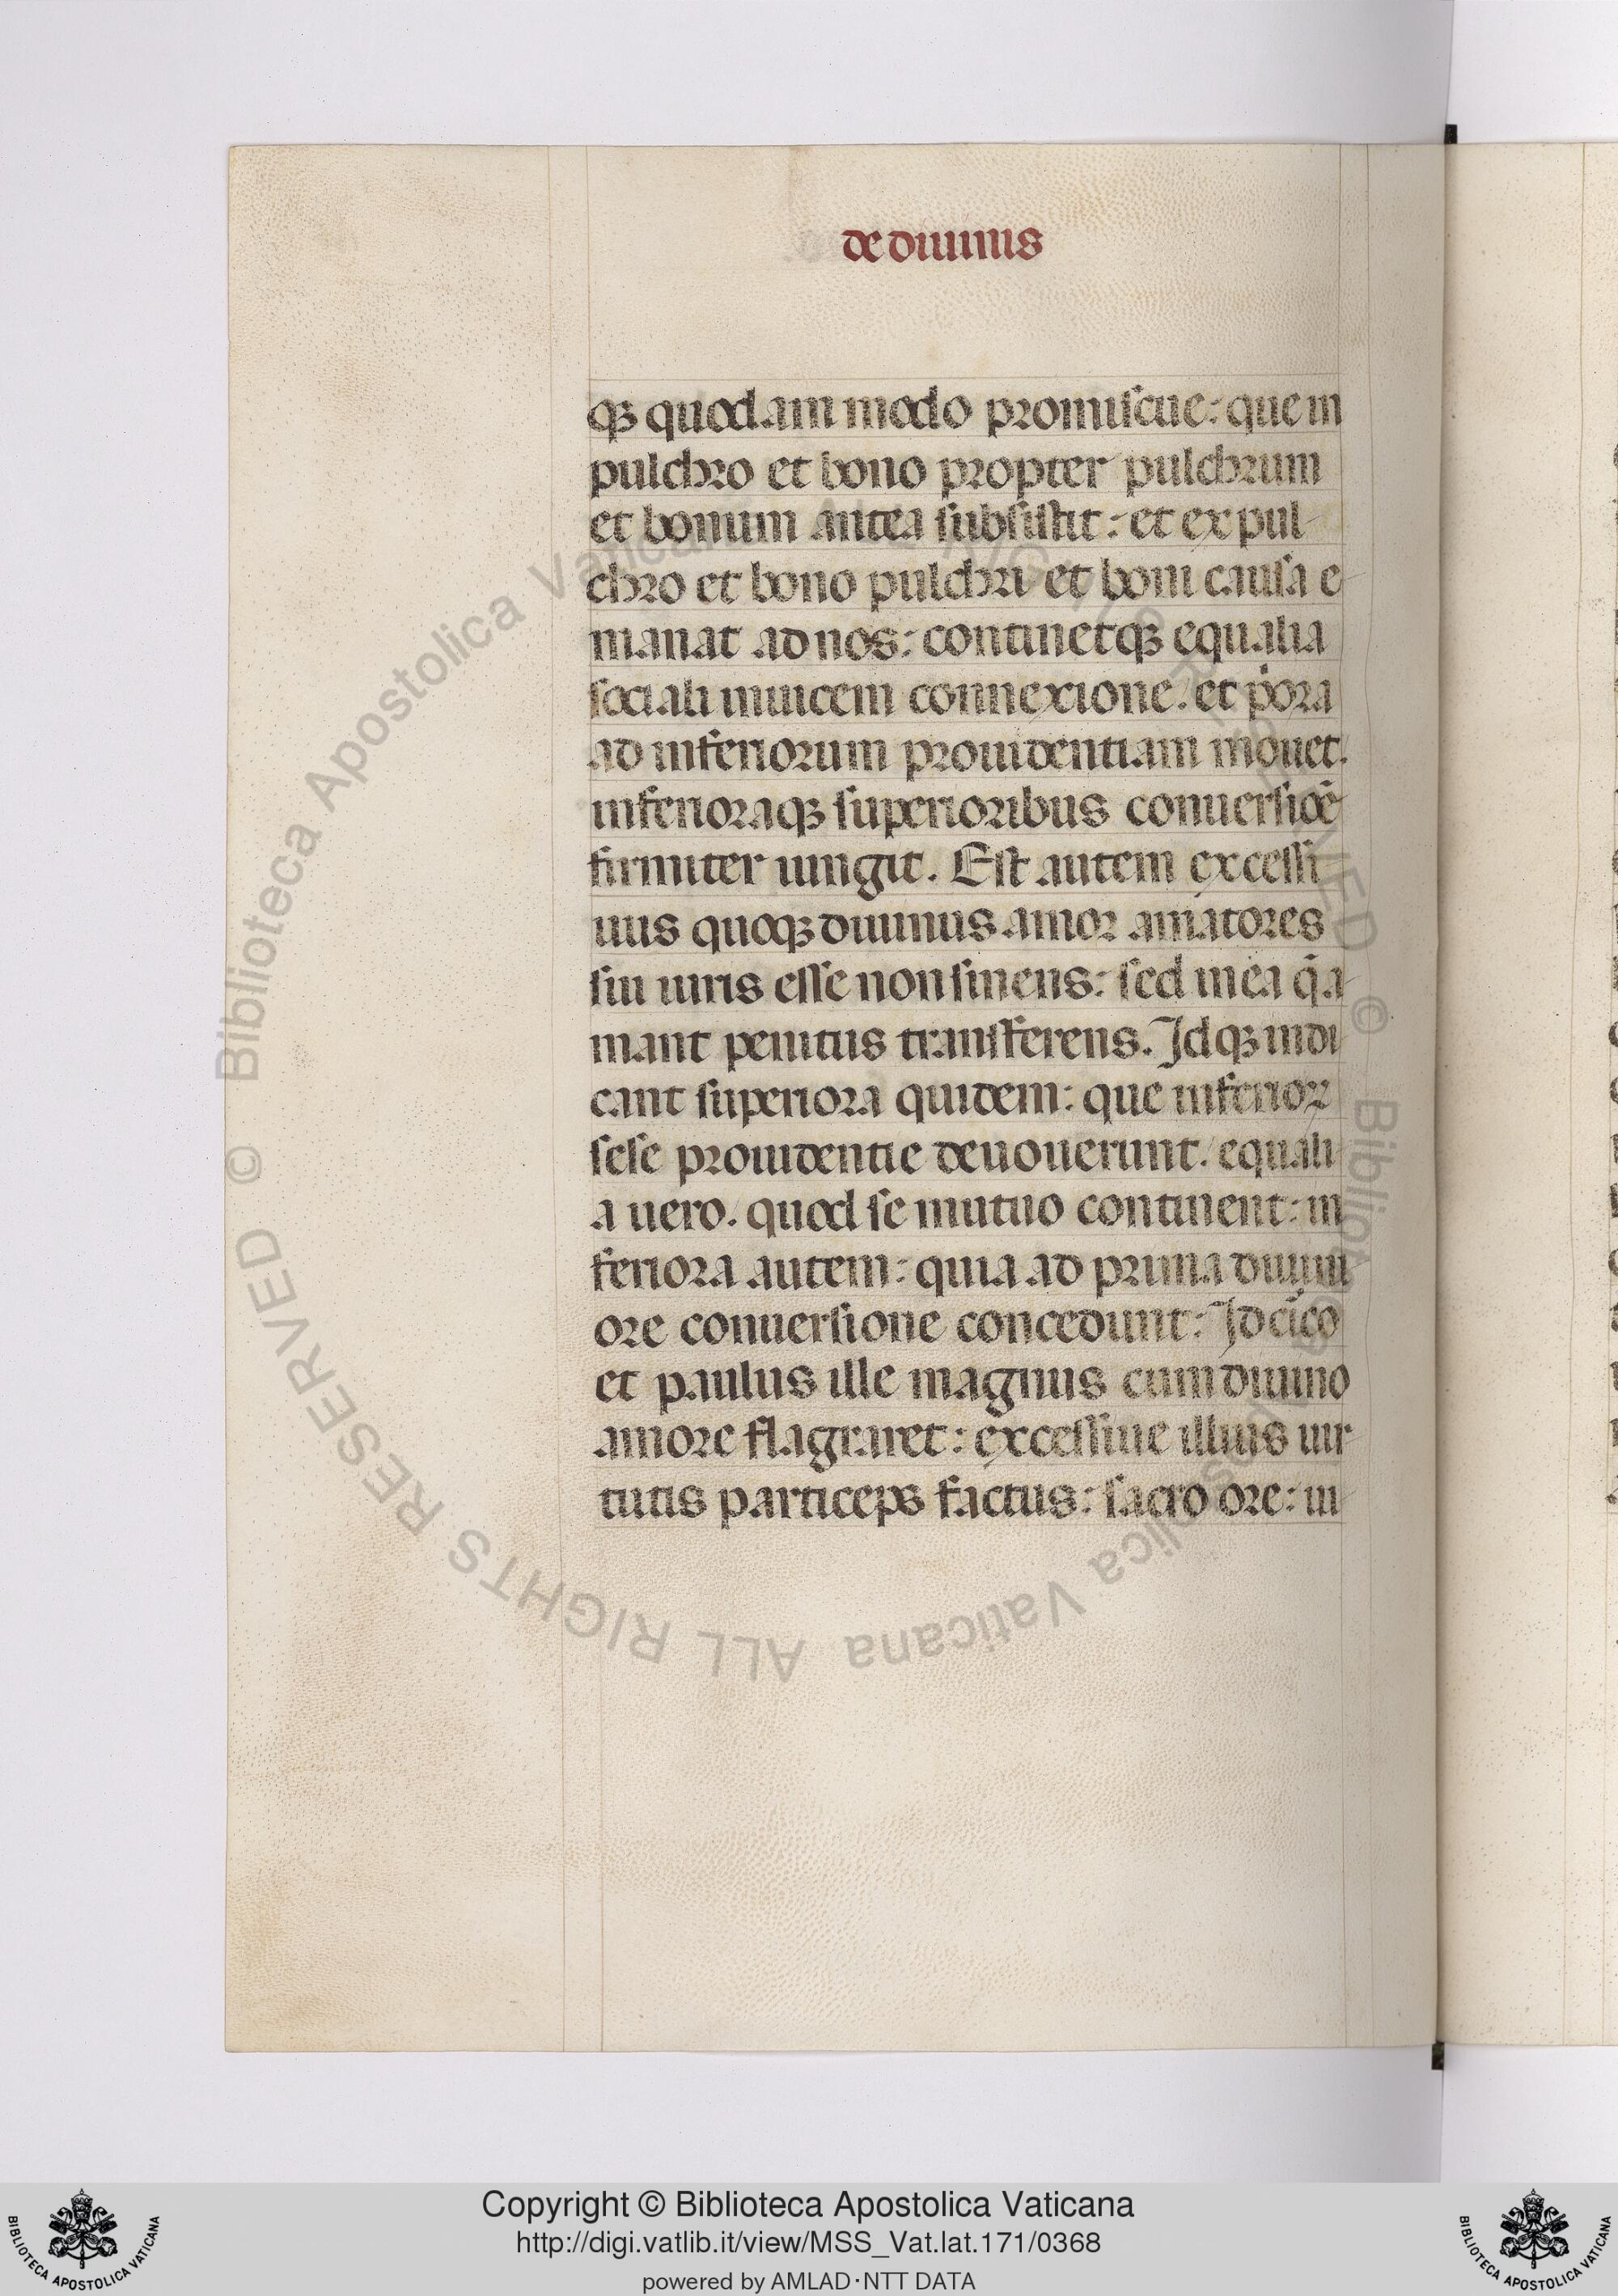 de diuinis
qꝫ quodam modo promiscue: que in
pulchro et bono propter pulchrum
et bonum antea subsistit: et ex pul
chro et bono pulchri et boni causa e
manat ad nos: continetqꝫ equalia
sociali inuicem connexione. et p̓ora
ad inferiorum prouidentiam mouet.
inferioraqꝫ superioribus conuersiōe
firmiter iungit. Est autem excessi
uus quoqꝫ diuinus amor amatores
sui iuris esse non sinens: sed in ea q̄ a
mant penitus transferens. Idqꝫ indi
cant superiora quidem: que inferioꝝ
sese prouidentie deuouerunt. equali
a uero. quod se mutuo continent: in
feriora autem: quia ad prima diuini
ore conuersione concedunt: Idcīco
et paulus ille magnus cum diuino
amore flagraret: excessiue illius uir
tutis particeps factus: sacro ore: in
Copyright © Biblioteca Apostolica Vaticana
http://digi.vatlib.it/view/MSS_Vat.lat.171/0368
powered by AMLAD·NTT DATA
BIBLIOTECA APOSTOLICA VATICANA
BIBLIOTECA APOSTOLICA VATICANA
© Biblioteca Apostolica Vaticana ALL RIGHTS RESERVED © Biblioteca Apostolica Vaticana ALL RIGHTS RESERVED